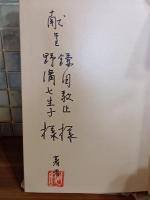 献呈
鎌田敬止様
野溝七生子様